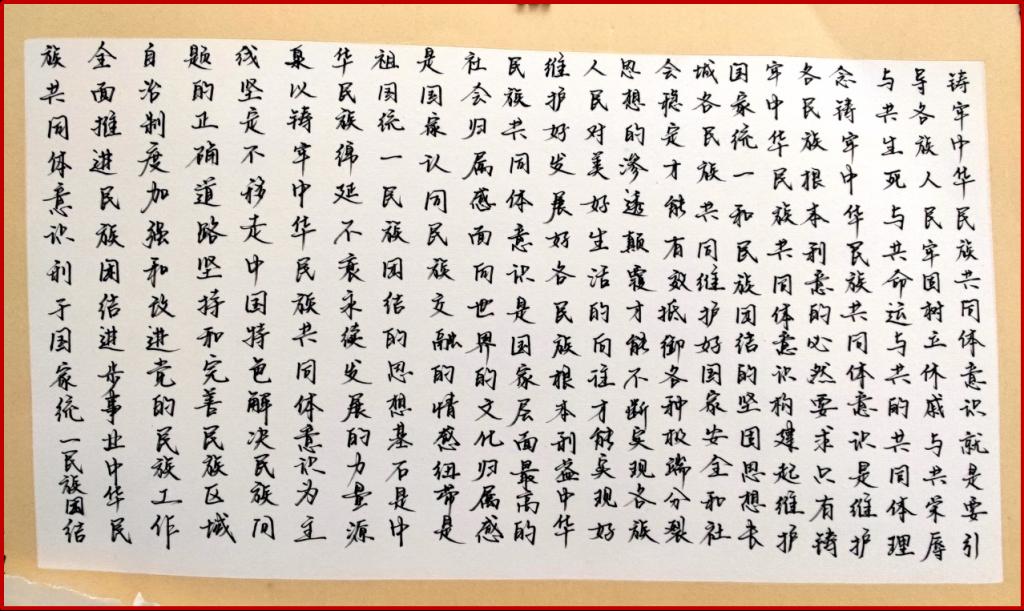 铸牢中华民族共同体意识就是要引
导各族人民牢固树立休戚与共荣辱
与共生死与共命运与共的共同体理
念铸牢中华民族共同体意识是维护
各民族根本利意的必然要求只有铸
牢中华民族共同体意识构建起维护
国家统一和民族团结的坚固思想长
城各民族共同维护好国家安全和社
会稳定才能有效抵御各种极端分裂
思想的渗透颠覆才能不断实现各族
人民对美好生活的向往才能实现好
维护好发展好各民族根本利益中华
民族共同体意识是国家层面最高的
社会归属感面向世界的文化归属感
是国家认同民族交融的情感纽带是
祖国统一民族团结的思想基石是中
华民族绵延不衰永续发展的力量源
泉以铸牢中华民族共同体意识为主
线坚定不移走中国特色解决民族问
题的正确道路坚持和完善民族区域
自治制度加强和改进党的民族工作
全面推进民族团结进步事业中华民
族共同体意识利于国家统一民族团结